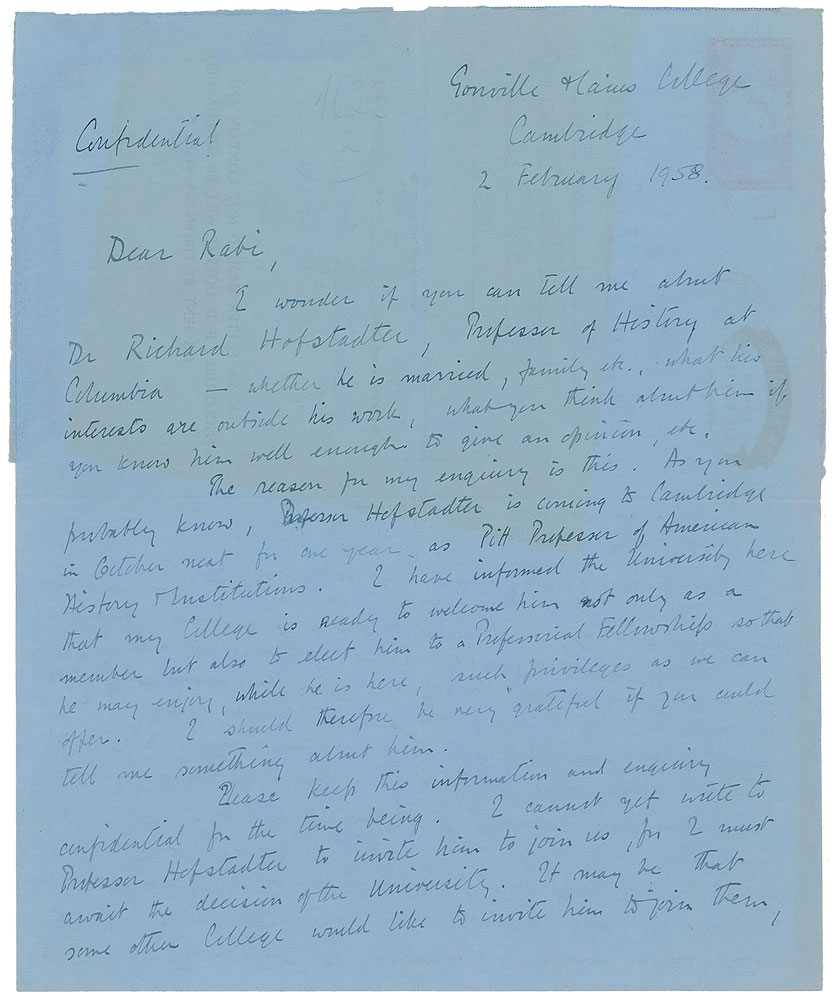 Gonville & Caius College
Cambridge
2 February 1958.
Confidential
Dear Rabi,
I wonder if you can tell me about
Dr Richard Hofstadter, Professor of History at
Columbia — whether he is married, family etc., what his
interests are outside his work, what you think about him if
you know him well enough to give an opinion, etc.
The reason for my enquiry is this. As you
probably know, Professor Hofstadter is coming to Cambridge
in October next for one year as Pitt Professor of American
History & Institutions. I have informed the University here
that my College is ready to welcome him not only as a
member but also to elect him to a Professorial Fellowship so that
he may enjoy, while he is here, such privileges as we can
offer. I should therefore be very grateful if you could
tell me something about him.
Please keep this information and enquiry
confidential for the time being. I cannot yet write to
Professor Hofstadter to invite him to join us, for I must
await the decision of the University. It may be that
some other College would like to invite him to join them,